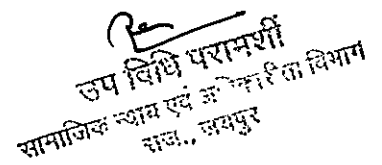 उप विधि परामर्शी
सामाजिक न्याय एवं अधिकारिता विभाग
राज., जयपुर